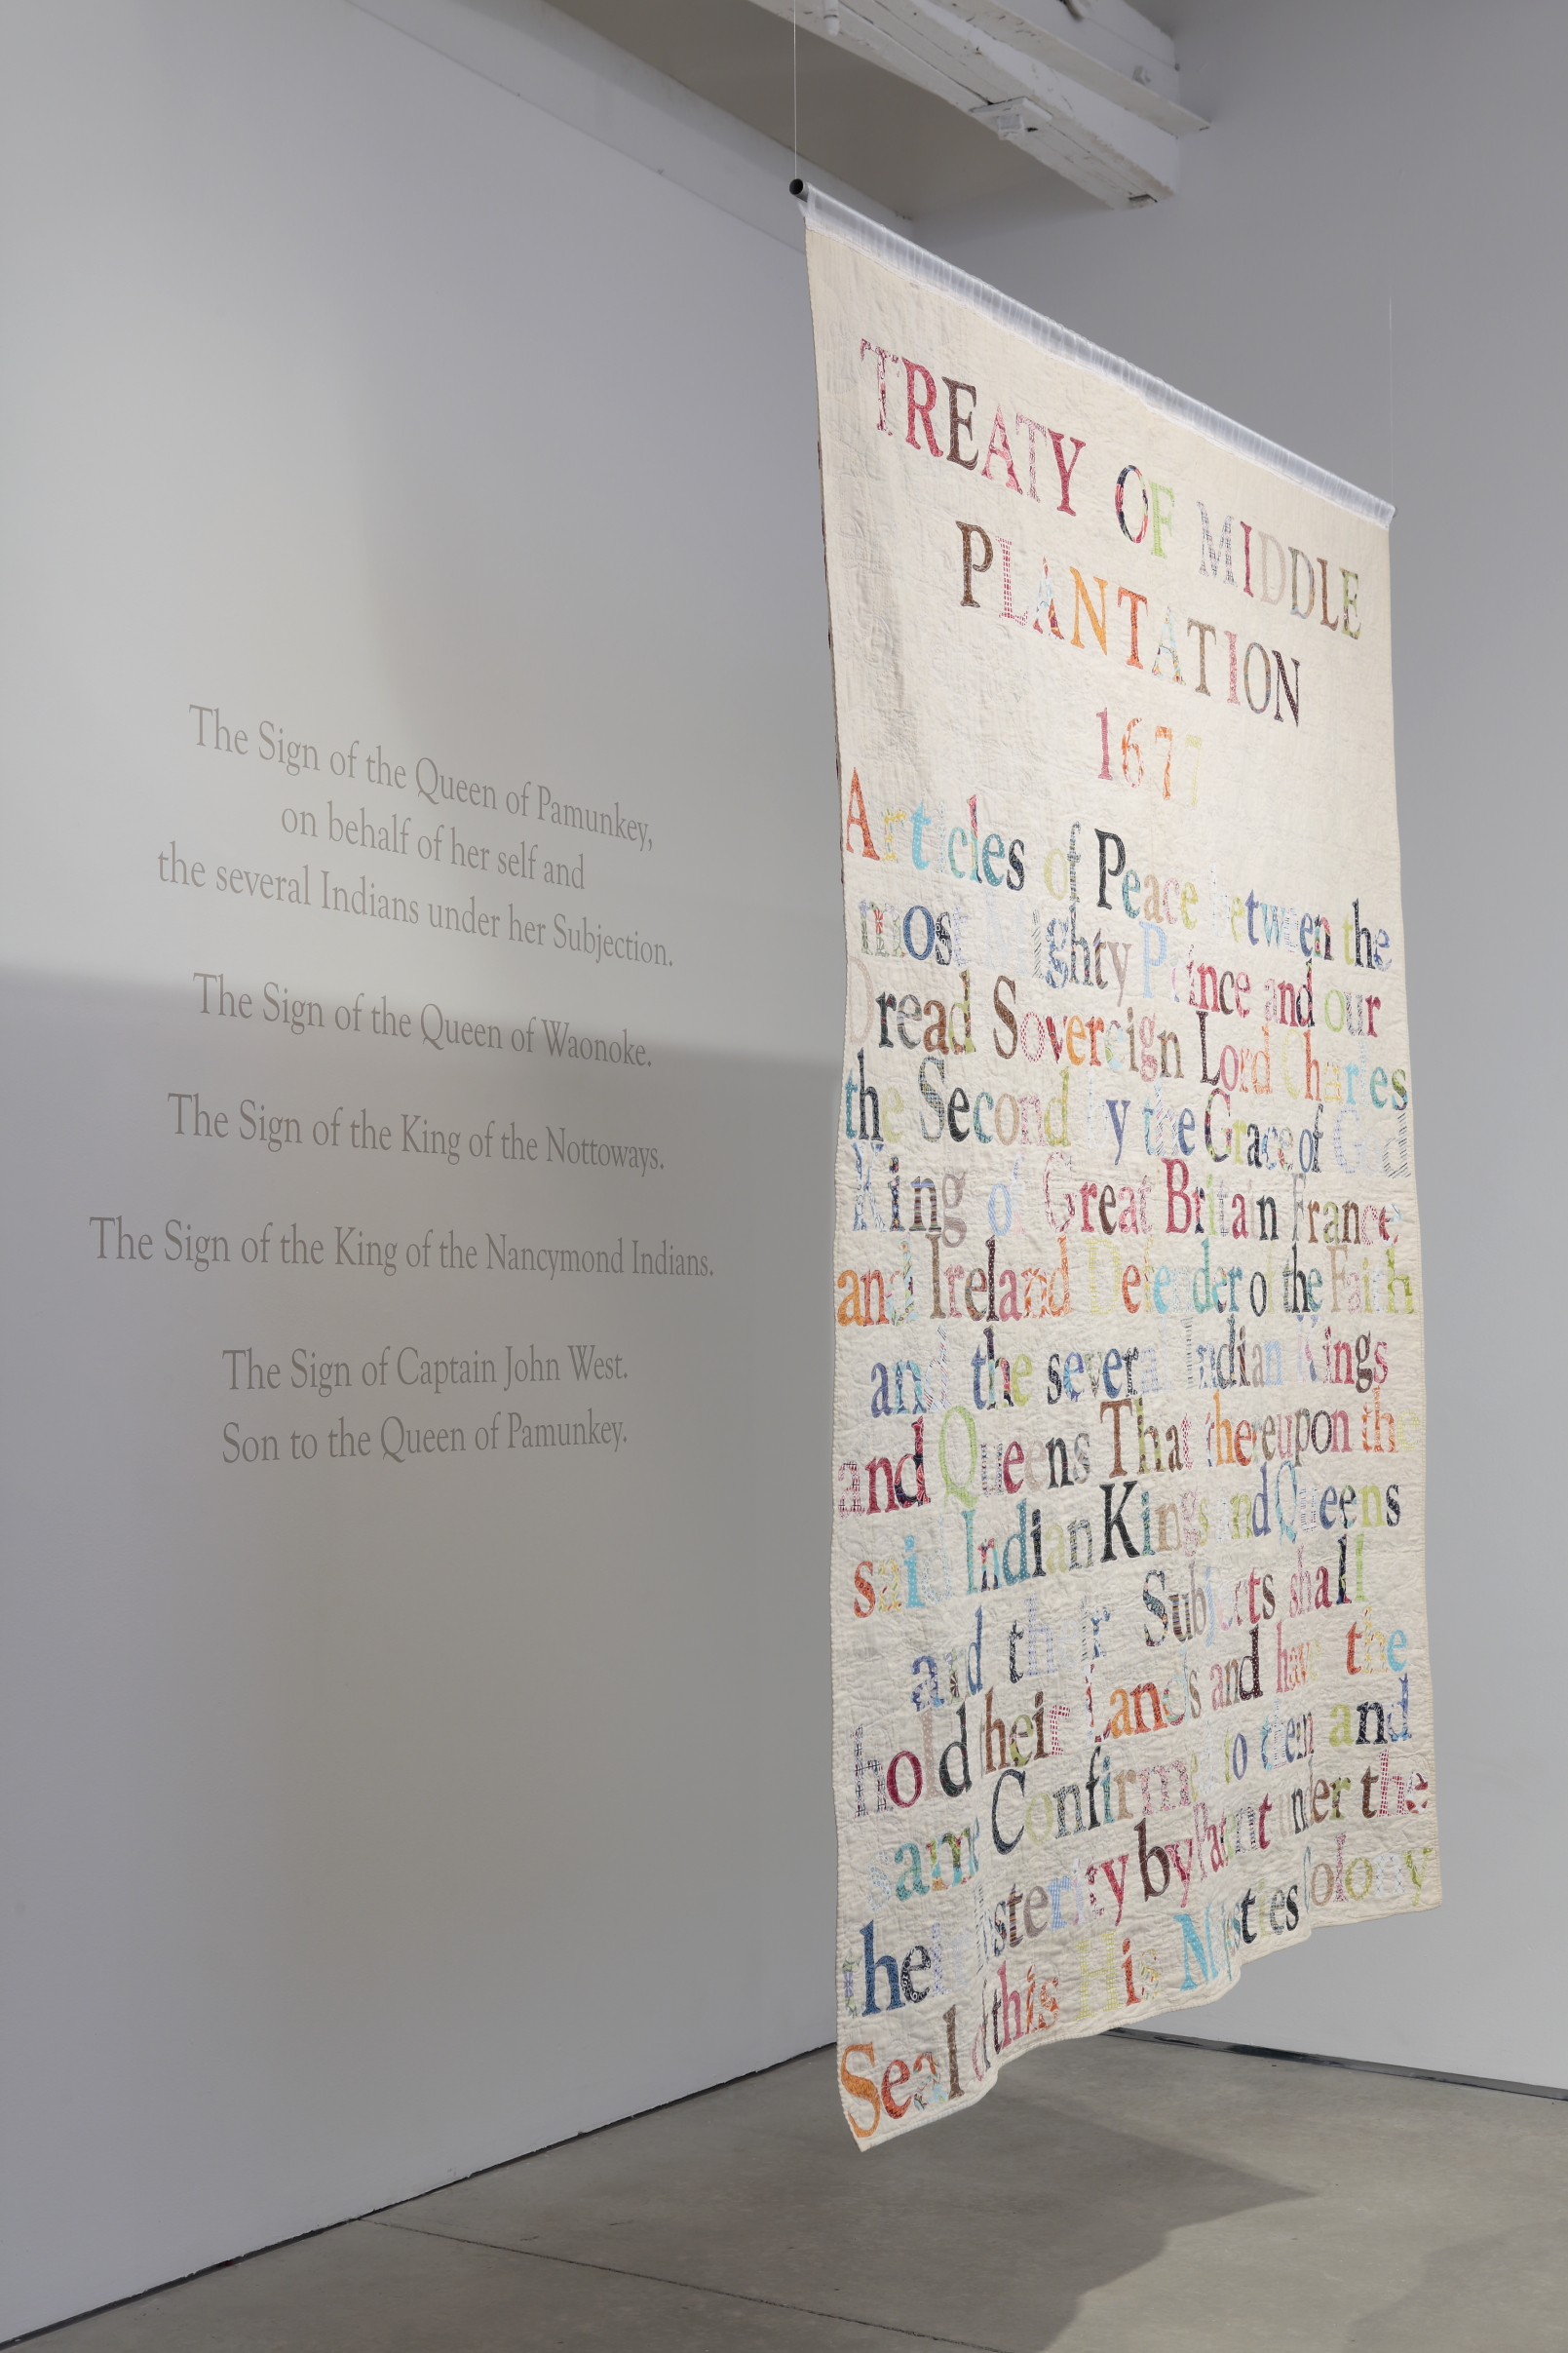 The Sign of the Queen of Pamunkey,
on behalf of her self and
the several Indians under her Subjection.
The Sign of the Queen of Waonoke.
The Sign of the King of the Nottoways.
The Sign of the King of the Nancymond Indians.
The Sign of Captain John West.
Son to the Queen of Pamunkey.
TREATY OF MIDDLE
PLANTATION
1677
Articles of Peace between the
most Mighty Prince and our
Dread Sovereign Lord Charles
the Second by the Grace of God
King of Great Britain France
and Ireland Defender of the Faith
and the several Indian Kings
and Queens That thereupon the
said Indian Kings and Queens
and their Subjects shall
hold their Lands and have the
same Confirmed to them and
their Posterity by Patent under the
Seal of this His Majesties Colony